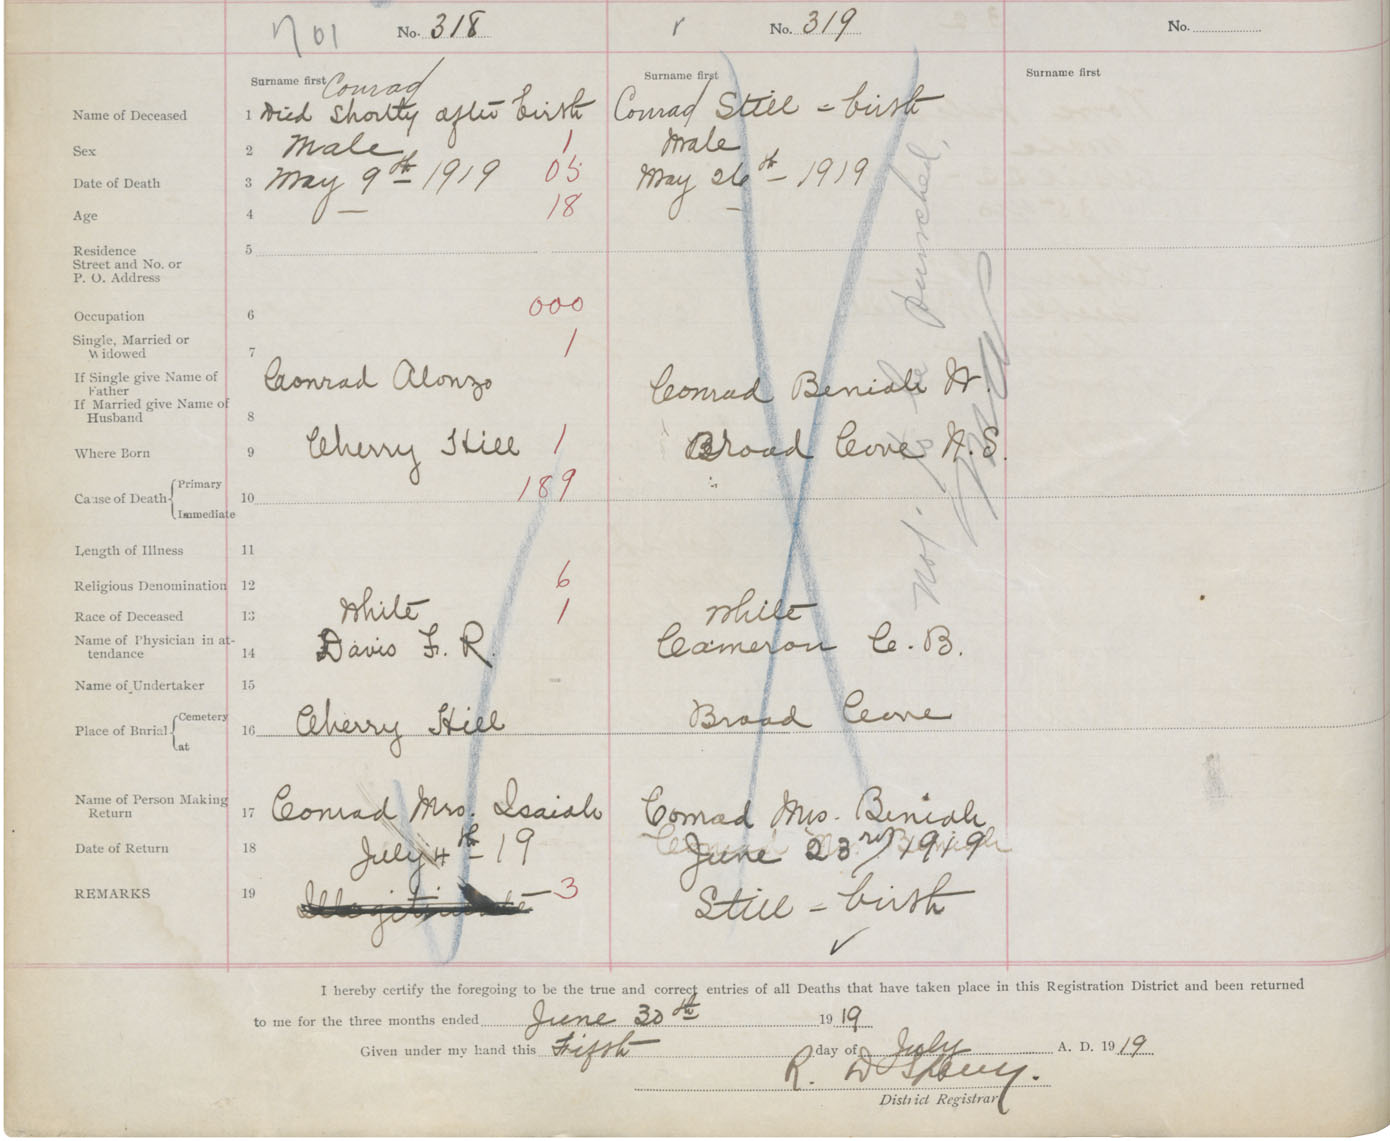 701 No. 318 ✓ No. 319 No.
Surname first Conrad Surname first Surname first
Name of Deceased 1 Died Shortly after birth Conrad Still - birth
Sex 2 Male 1 Male
Date of Death 3 May 9th 1919 05 May 26th - 1919
Age 4 — 18 —
Residence 5
Street and No. or
P. O. Address
Occupation 6 000
Single, Married or
Widowed 7 1
If Single give Name of
Father Conrad Alonzo Conrad Beniah W.
If Married give Name of
Husband 8
Where Born 9 Cherry Hill 1 Broad Cove N.S.
Cause of Death Primary 10 189
Immediate
Length of Illness 11
Religious Denomination 12 6
Race of Deceased 13 White 1 White
Name of Physician in at-
tendance 14 Davis F. R. Cameron C. B.
Name of Undertaker 15
Place of Burial Cemetery 16 Cherry Hill Broad Cove
at
Name of Person Making
Return 17 Conrad Mrs. Isaiah Conrad Mrs. Beniah
Date of Return 18 July 4th - 19 June 23rd/1919
REMARKS 19 Illegitimate 3 Still - birth
✓
Not to be punched.
I hereby certify the foregoing to be the true and correct entries of all Deaths that have taken place in this Registration District and been returned
to me for the three months ended June 30th 1919
Given under my hand this Fifth day of July A. D. 1919
R. D
District Registrar